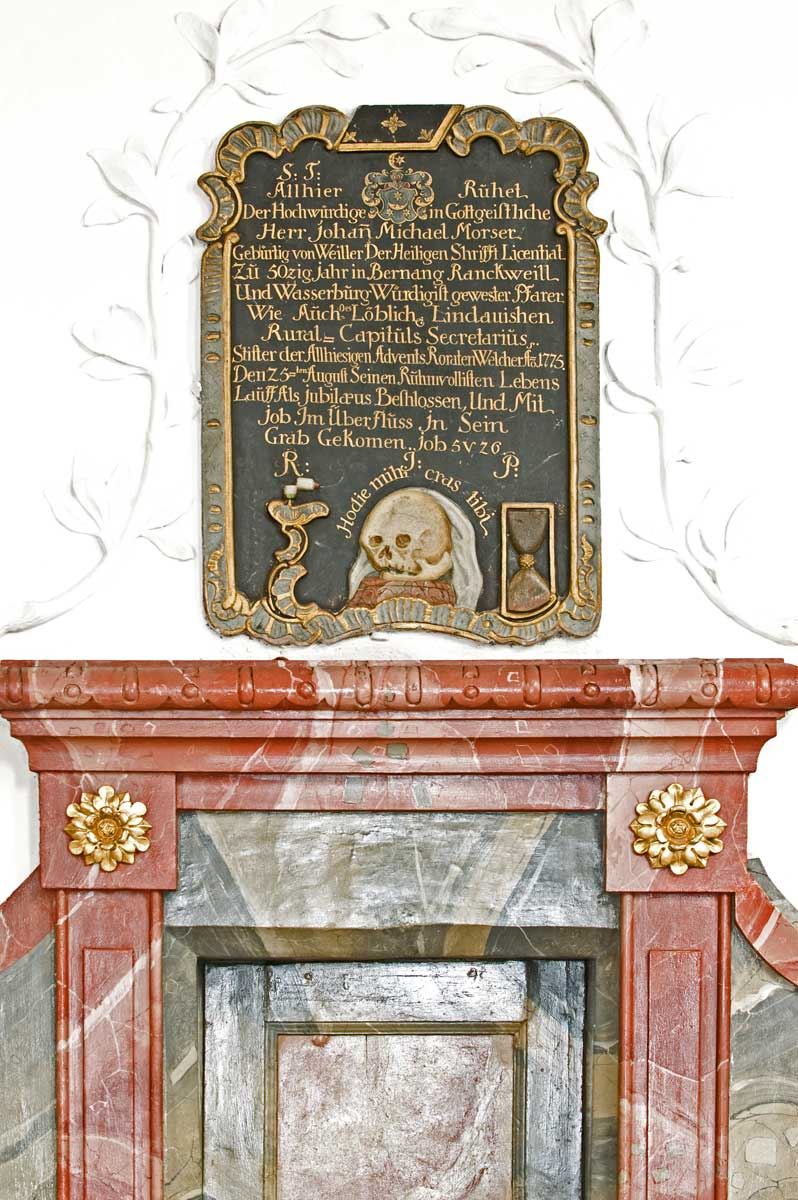 S: T:
Allhier Rühet
Der Hochwürdige in Gottgeistliche
Herr Johañ Michael Morser
Gebürtig von Weiller Der Heiligen Schrifft Licentiat
Zü 50zig Jahr in Bernang Ranckweill
Und Wasserbürg Würdigist gewester Pfarer
Wie Aüch Der Löblich Lindauishen
Rural= Capitüls Secretariüs
Stifter der Allhiesigen Advents Roraten Welcher 1775.
Den 25=ten August Seinen Rühmvollisten Lebens
Laüff Als jubilæus Beshlossen, Und Mit
job Im Überflüss in Sein
Grab Gekomen, job 5 v 26
R: I: P:
Hodie mihi cras tibi